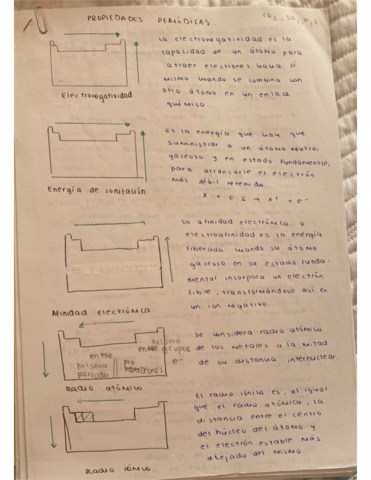 PROPIEDADES PERIÓDICAS.
La electronegatividad es la
capacidad de un átomo para
atraer electrones hacia sí
mismo cuando se combina con
otro átomo en un enlace
químico.
Electronegatividad
Es la energía que hay que
suministrar a un átomo neutro,
gaseoso y en estado fundamental,
para arrancarle el electrón
más débil retenido.
x + E.I → x⁺ + e⁻
Energía de ionización
La afinidad electrónica o
electroafinidad es la energía
liberada cuando su átomo
gaseoso en su estado funda-
mental incorpora un electrón
libre, transformándose así en
un ion negativo.
Afinidad electrónica
Se considera radio atómico
de los metales a la mitad
de su distancia internuclear.
en el
mismo
periodo
mismo
grupos
Radio atómico
El radio iónico es, al igual
que el radio atómico, la
distancia entre el centro
del núcleo del átomo y
el electrón estable más
alejado del mismo.
Radio iónico